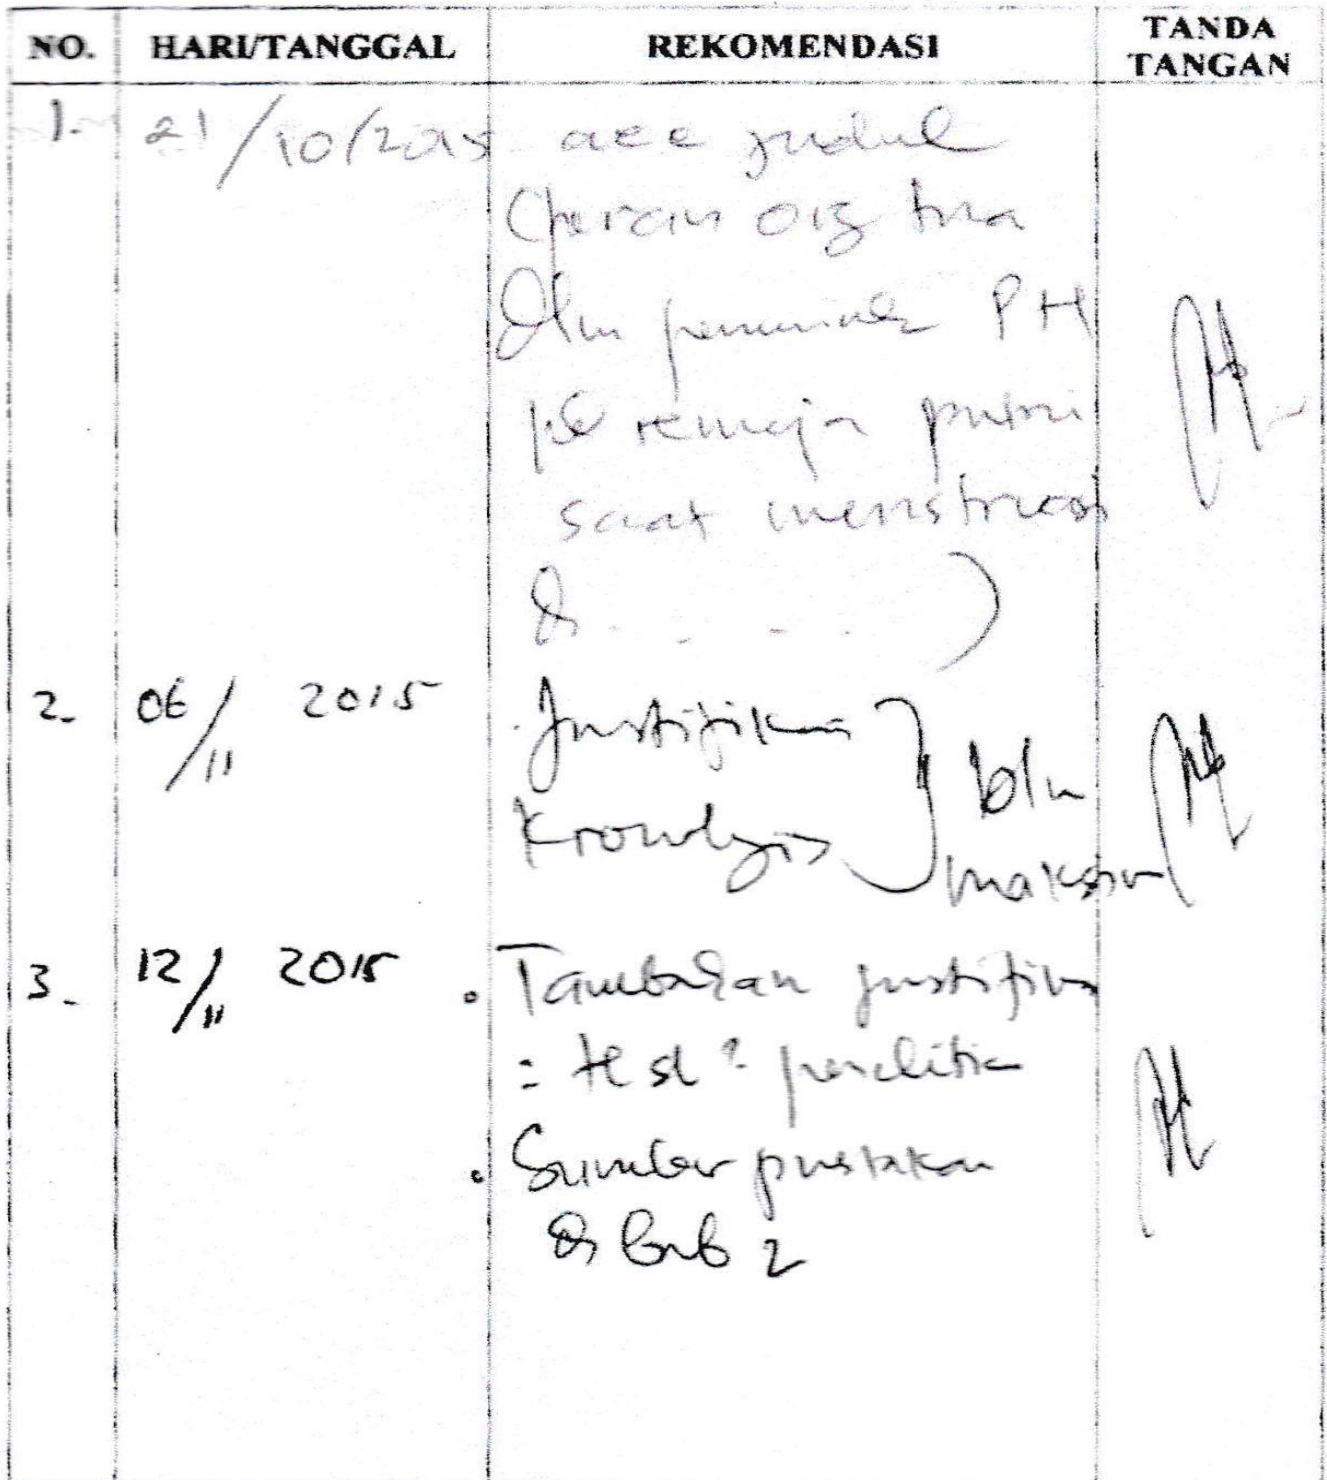 NO. HARI/TANGGAL REKOMENDASI TANDA TANGAN
1. 21/10/2015 acc judul
(peran org tua
dlm pemenuhan PH
pd remaja putri
saat menstruasi
di . . . . )
2. 06/11 2015 . Justifikasi } blm
Kronologis maksimal
3. 12/11 2015 . Tambahan justifikasi
: Hsl² penelitian
. Sumber pustaka
di bab 2